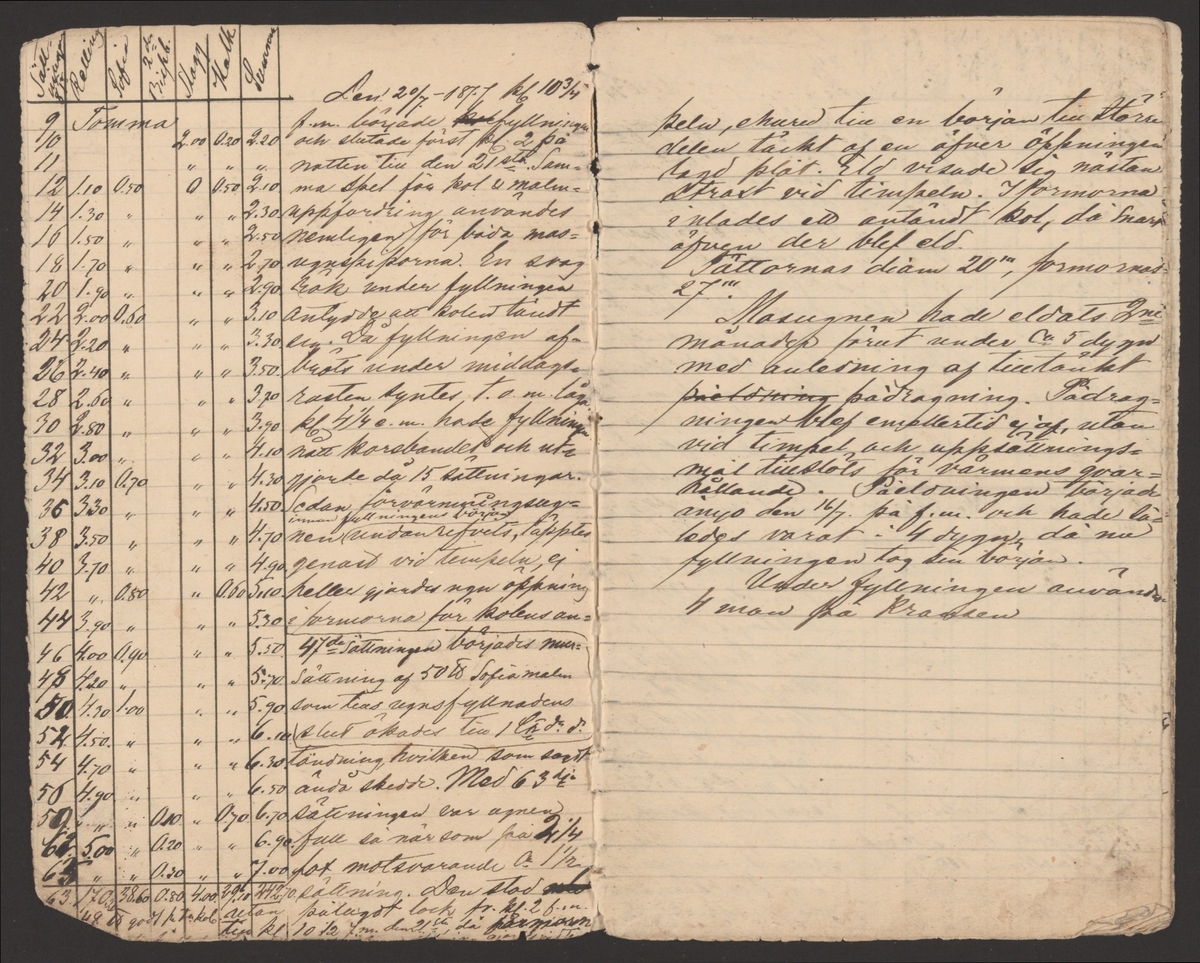 Relling Sofia 2da Bispb. Slagg Kalk Summa
9 Tomma
10 2.00 0.20 2.20
11 " " "
12 1.10 0.50 0 0.50 2.10
14 1.30 " " " 2.30
16 1.50 " " " 2.50
18 1.70 " " " 2.70
20 1.90 " " " 2.90
22 2.00 0.60 " " 3.10
24 2.20 " " " 3.30
26 2.40 " " " 3.50
28 2.60 " " " 3.70
30 2.80 " " " 3.90
32 3.00 " " " 4.10
34 3.10 0.70 " " 4.30
36 3.30 " " " 4.50
38 3.50 " " " 4.70
40 3.70 " " " 4.90
42 " 0.80 " 0.60 5.10
44 3.90 " " " 5.30
46 4.00 0.90 " " 5.50
48 4.20 " " " 5.70
50 4.30 1.00 " " 5.90
52 4.50 " " " 6.10
54 4.70 " " " 6.30
56 4.90 " " " 6.50
59 " " 0.10 " 0.70 6.70
62 5.00 " 0.20 " " 6.90
63 " " 0.30 " " 7.00
63 38.60 0.80 4.00
Den 20/7 - 1877 kl 10 3/4
f.m. började fyllningen
och slutade först kl. 2 på
natten till den 21sta. Sam-
ma spel för kol & malm-
uppfordring användes
nemligen för båda mas-
ugnspiporna. En svag
rök under fyllningen
antydde att kolen tändt
sig. Då fyllningen af-
bröts under middags-
rasten syntes t. o. m. låga
kl 4 1/4 e.m. hade fyllningen
nått korsbandet och ut-
gjorde då 15 sättningar.
Sedan förvärmningsug-
innan fyllningens början
nen undanrifvits, täpptes
genast vid timpeln, ej
heller gjordes ngn öppning
i formorna för kolens an-
47de sättningen började mur-
sättning af 50 ℔ Sofiamalm
som till ugnsfyllnadens
slut ökades till 1 Ctr d:o d:o
tändning, hvilken som sagdt
ändå skedde. Med 63dje
sättningen var ugnen
full så när som på 2 1/4
fot motsvarande Ca 1 1/2
sättning. Den stod
pålagdt lock fr. kl. 2 f.m.
till kl 10 1/2 f.m. den 21sta, då
peln, ehuru till en början till större
delen täckt af en öfver öppningen
lagd plåt. Eld visade sig nästan
strax vid timpeln. I formorna
inlades ett antändt kol, då snart
äfven der blef eld.
Tättornas diam 20''', formornas
27'''.
Masugnen hade eldats 2ne
månader förut under Ca 5 dygn
med anledning af tilltänkt
påeldning pådragning. Pådrag-
ningen blef emellertid ej af, utan
vid timpel och uppsättnings-
mål tillslöts för värmens qvar-
hållande. Påeldningen började
ånyo den 16/7 på f.m. och hade så-
ledes varat i 4 dygn, då nu
fyllningen tog sin början.
Under fyllningen användes
4 man på kransen